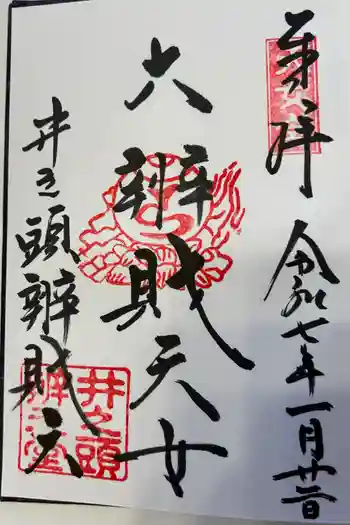 奉拝
令和七年一月廿二日
大辨財天女
井之頭辨財天
井之頭
辨財堂